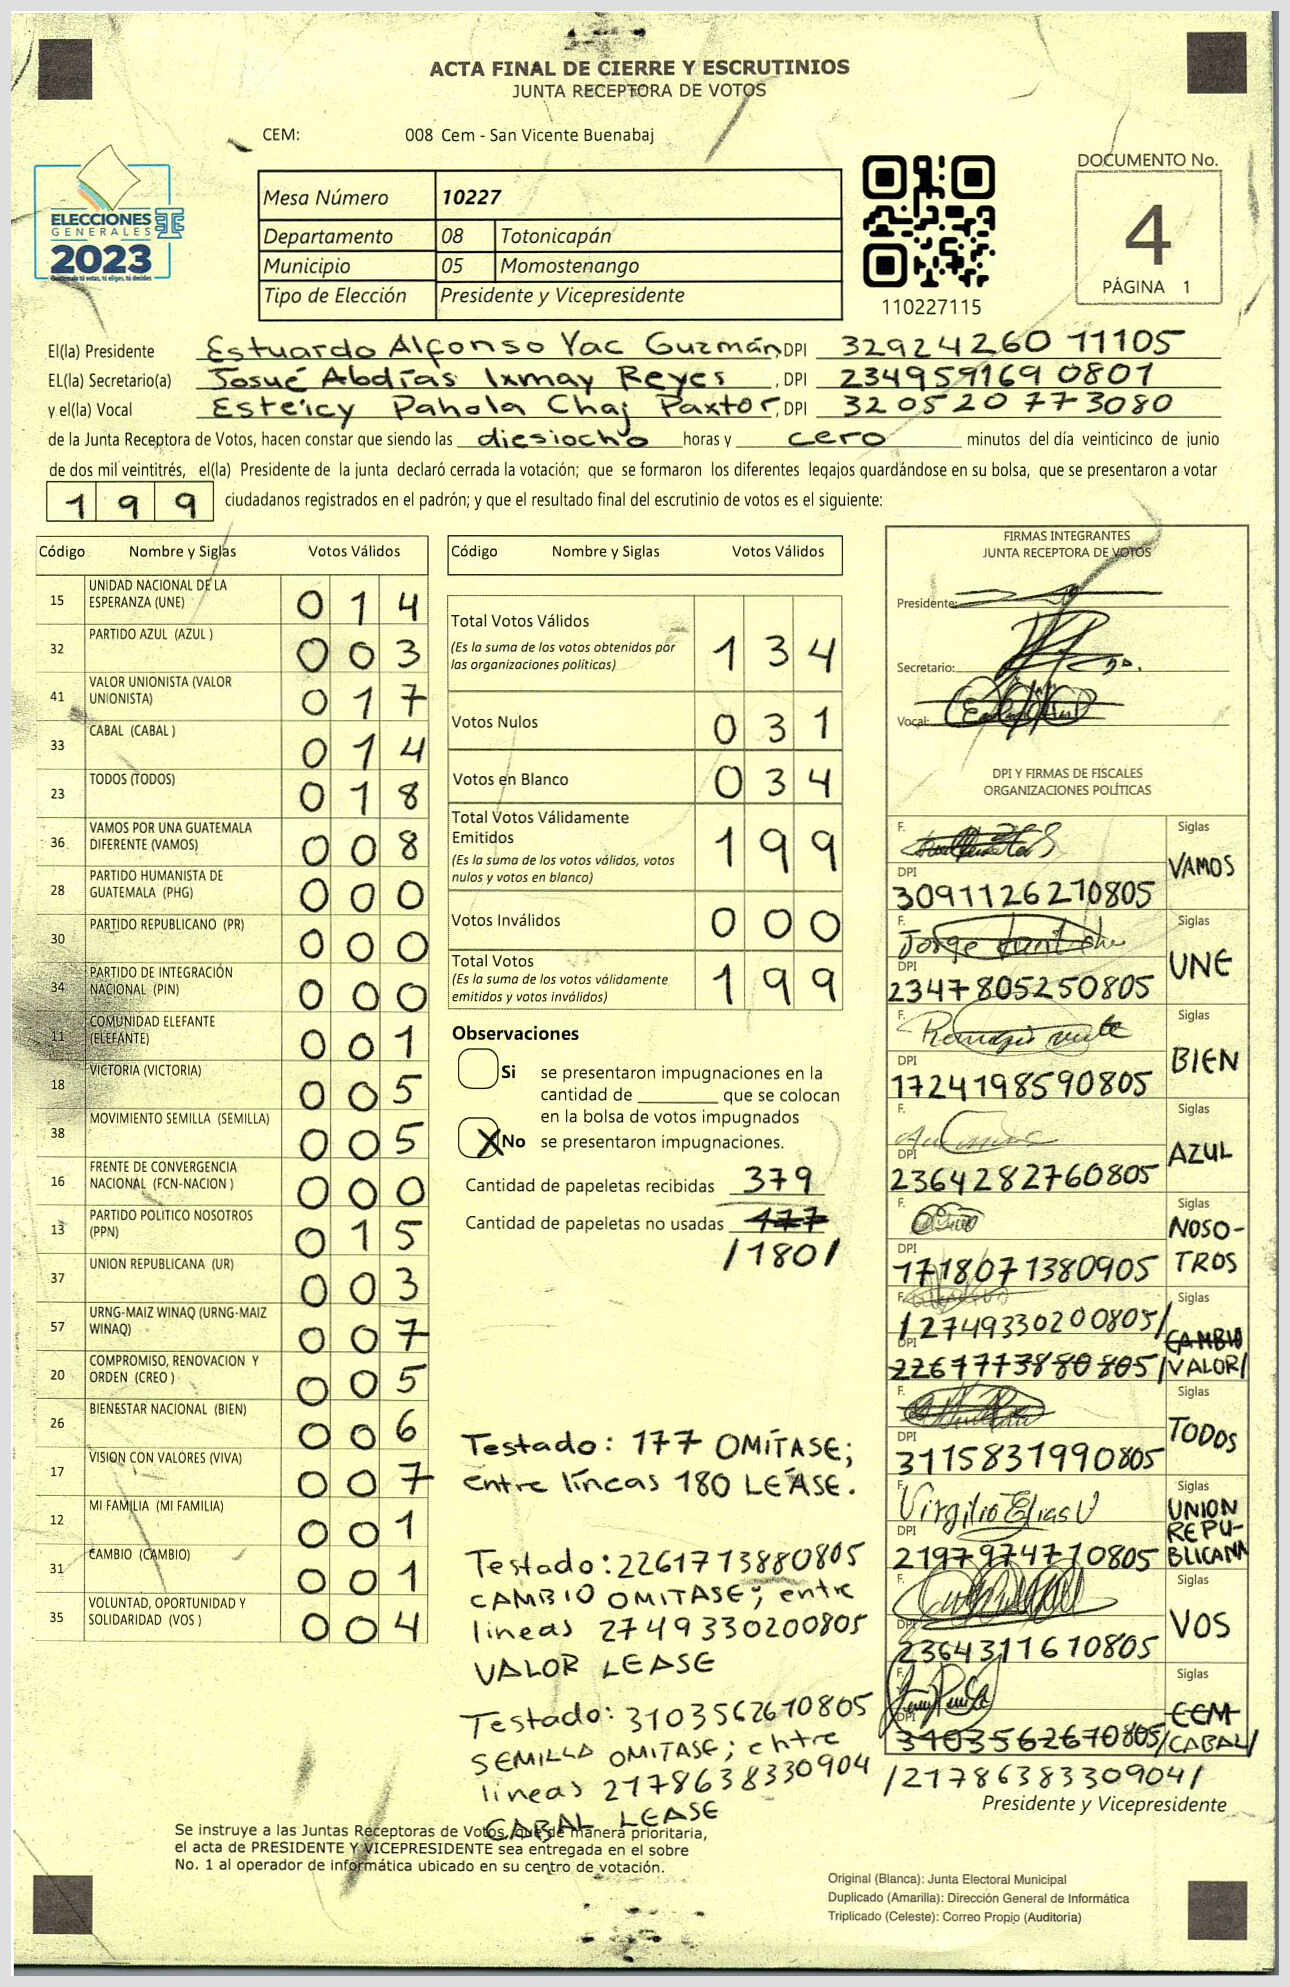 ACTA FINAL DE CIERRE Y ESCRUTINIOS
JUNTA RECEPTORA DE VOTOS
CEM: 008 Cem - San Vicente Buenabaj
ELECCIONES
GENERALES
2023
Guatemala tú votas, tú eliges, tú decides
Mesa Número 10227
Departamento 08 Totonicapán
Municipio 05 Momostenango
Tipo de Elección Presidente y Vicepresidente
110227115
DOCUMENTO No.
4
PÁGINA 1
El(la) Presidente Estuardo Alfonso Yac Guzmán, DPI 32924260 11105
EL(la) Secretario(a) Josué Abdías Ixmay Reyes, DPI 234959169 0801
y el(la) Vocal Esteicy Pahola Chaj Paxtor, DPI 3205207773080
de la Junta Receptora de Votos, hacen constar que siendo las diesiocho horas y cero minutos del día veinticinco de junio
de dos mil veintitrés, el(la) Presidente de la junta declaró cerrada la votación; que se formaron los diferentes legajos guardándose en su bolsa, que se presentaron a votar
199 ciudadanos registrados en el padrón; y que el resultado final del escrutinio de votos es el siguiente:
Código Nombre y Siglas Votos Válidos
15 UNIDAD NACIONAL DE LA ESPERANZA (UNE) 014
32 PARTIDO AZUL (AZUL ) 003
41 VALOR UNIONISTA (VALOR UNIONISTA) 017
33 CABAL (CABAL ) 014
23 TODOS (TODOS) 018
36 VAMOS POR UNA GUATEMALA DIFERENTE (VAMOS) 008
28 PARTIDO HUMANISTA DE GUATEMALA (PHG) 000
30 PARTIDO REPUBLICANO (PR) 000
34 PARTIDO DE INTEGRACIÓN NACIONAL (PIN) 000
11 COMUNIDAD ELEFANTE (ELEFANTE) 001
18 VICTORIA (VICTORIA) 005
38 MOVIMIENTO SEMILLA (SEMILLA) 005
16 FRENTE DE CONVERGENCIA NACIONAL (FCN-NACION ) 000
13 PARTIDO POLITICO NOSOTROS (PPN) 015
37 UNION REPUBLICANA (UR) 003
57 URNG-MAIZ WINAQ (URNG-MAIZ WINAQ) 007
20 COMPROMISO, RENOVACION Y ORDEN (CREO ) 005
26 BIENESTAR NACIONAL (BIEN) 006
17 VISION CON VALORES (VIVA) 007
12 MI FAMILIA (MI FAMILIA) 001
31 CAMBIO (CAMBIO) 001
35 VOLUNTAD, OPORTUNIDAD Y SOLIDARIDAD (VOS ) 004
Código Nombre y Siglas Votos Válidos
Total Votos Válidos 134
(Es la suma de los votos obtenidos por las organizaciones políticas)
Votos Nulos 031
Votos en Blanco 034
Total Votos Válidamente Emitidos 199
(Es la suma de los votos válidos, votos nulos y votos en blanco)
Votos Inválidos 000
Total Votos 199
(Es la suma de los votos válidamente emitidos y votos inválidos)
Observaciones
Si se presentaron impugnaciones en la
cantidad de ________ que se colocan
en la bolsa de votos impugnados
X No se presentaron impugnaciones.
Cantidad de papeletas recibidas 379
Cantidad de papeletas no usadas 177
/180/
Testado: 177 OMÍTASE;
entre líneas 180 LÉASE.
Testado: 2261713880805
CAMBIO OMITASE; entre
lineas 2749330200805
VALOR LEASE
Testado: 3103562670805
SEMILLA OMITASE; entre
lineas 2178638330904
CABAL LEASE
FIRMAS INTEGRANTES
JUNTA RECEPTORA DE VOTOS
Presidente:
Secretario:
Vocal:
DPI Y FIRMAS DE FISCALES
ORGANIZACIONES POLÍTICAS
F. Siglas
DPI 3091126270805 VAMOS
F. Jorge Siglas
DPI 2347805250805 UNE
F. Siglas
DPI 1724198590805 BIEN
F. Siglas
DPI 2364282760805 AZUL
F. Siglas
DPI 1718071380905 NOSO-TROS
F. Siglas
/2749330200805/ CAMBIO
DPI 2267773880805 /VALOR/
F. Siglas
DPI 3115831990805 TODOS
F. Virgilio Elias V Siglas
DPI 2197974710805 UNION REPU-BLICANA
F. Siglas
DPI 2364311610805 VOS
F. Siglas
DPI 3103562670805 /CABAL/
/2178638330904/
Presidente y Vicepresidente
Se instruye a las Juntas Receptoras de Votos, que de manera prioritaria,
el acta de PRESIDENTE Y VICEPRESIDENTE sea entregada en el sobre
No. 1 al operador de informática ubicado en su centro de votación.
Original (Blanca): Junta Electoral Municipal
Duplicado (Amarilla): Dirección General de Informática
Triplicado (Celeste): Correo Propio (Auditoria)